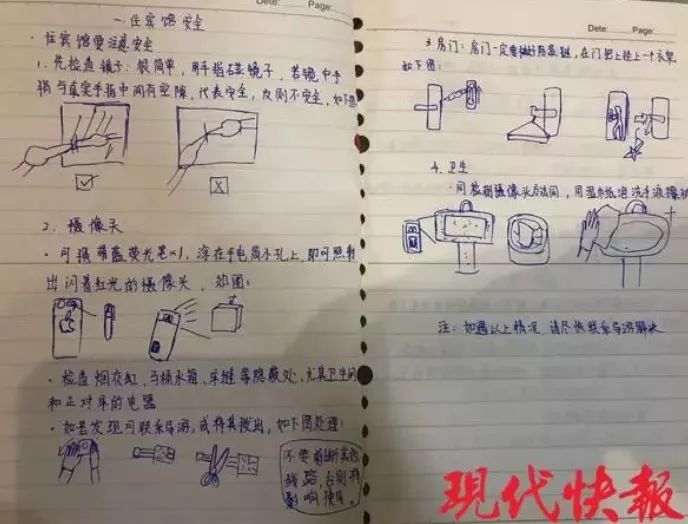 Date: Page:
一. 住宾馆安全
· 住宾馆要注意安全
1. 先检查镜子: 很简单, 用手指碰镜子, 若镜中手
指与真实手指中间有空隙, 代表安全, 反则不安全, 如下图
2. 摄像头
· 可携带蓝荧光笔×1, 涂在手电筒小孔上, 即可照射
出闪着红光的摄像头, 如图:
· 检查烟灰缸, 马桶水箱, 床缝等隐蔽处, 尤其卫生间
和正对床的电器
· 如若发现可联系导游, 或将其拨出, 如下图处理:
不要
线路, 否则将
影响使用.
Date: Page:
3. 房门: 房门一定要, 在门把上挂上一个衣架
如下图:
4. 卫生
· 同检测摄像头方法同, 用湿巾纸洗手液擦
注: 如遇以上情况, 请尽快联系导游解决
现代快報